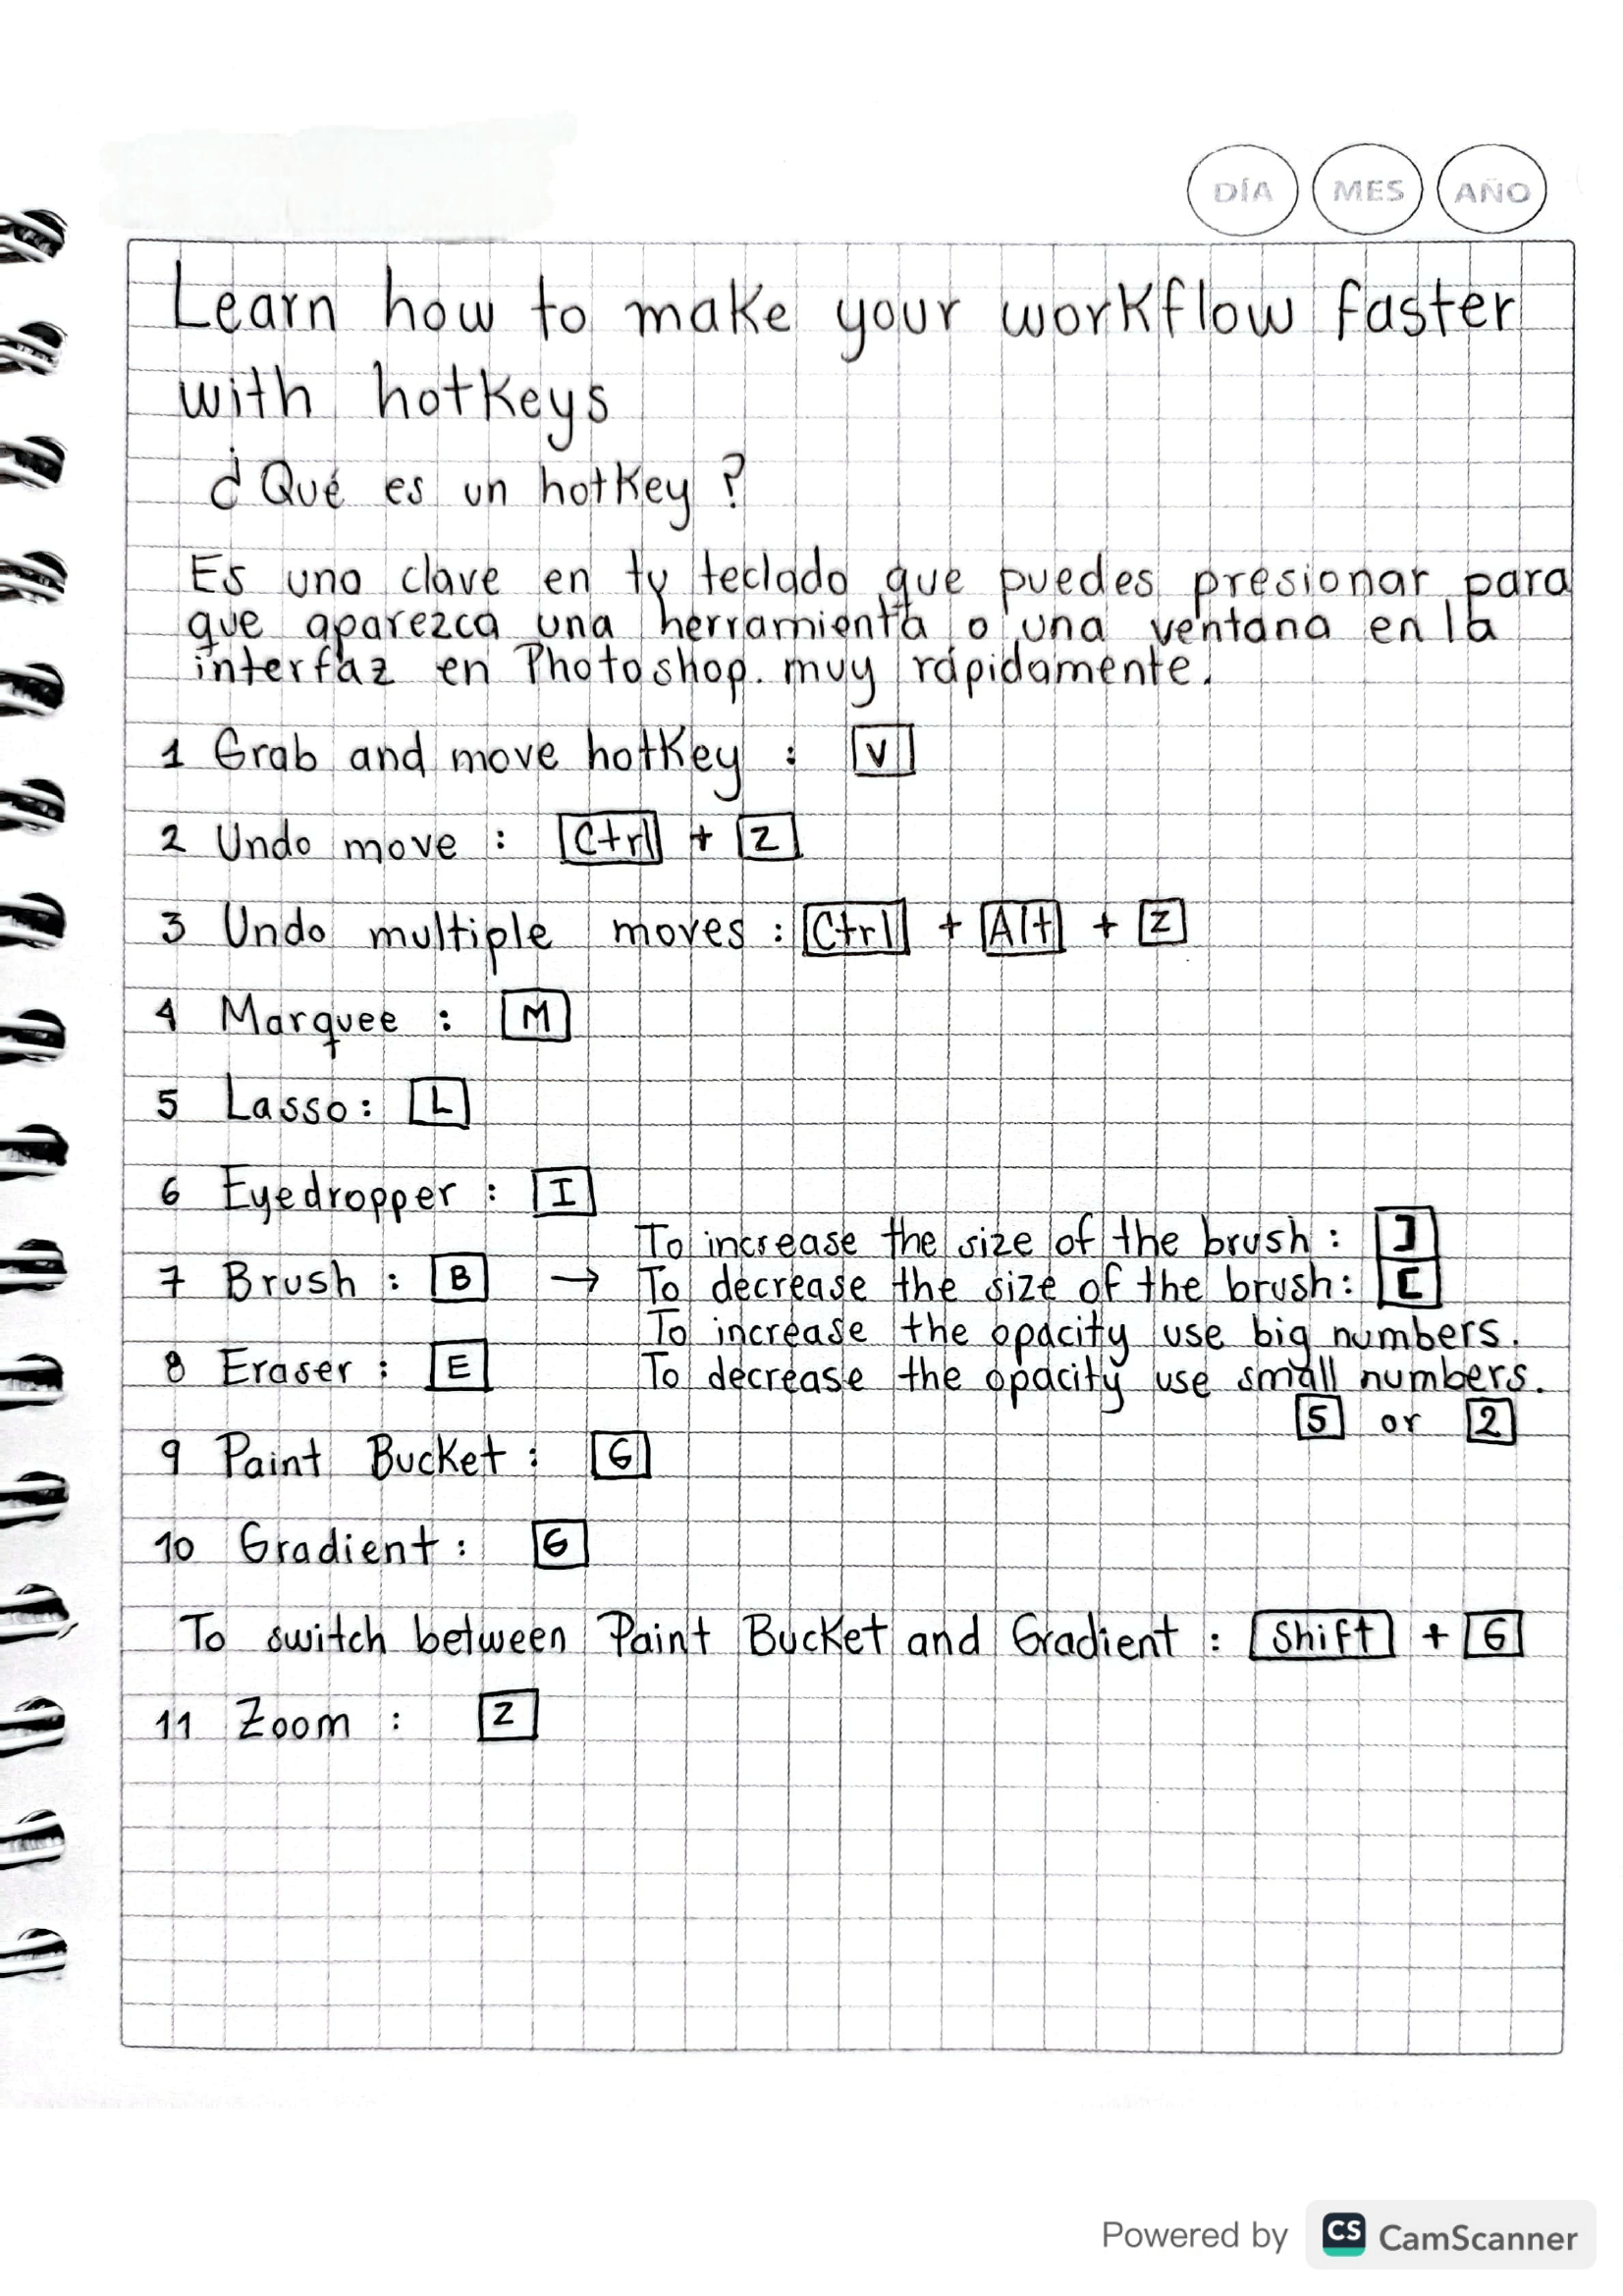 DÍA MES AÑO
Learn how to make your workflow faster
with hotkeys
¿Qué es un hotkey?
Es una clave en tu teclado que puedes presionar para
que aparezca una herramienta o una ventana en la
interfaz en Photoshop. muy rápidamente.
1 Grab and move hotkey : V
2 Undo move : Ctrl + Z
3 Undo multiple moves : Ctrl + Alt + Z
4 Marquee : M
5 Lasso : L
6 Eyedropper : I
To increase the size of the brush : ]
7 Brush : B → To decrease the size of the brush : [
To increase the opacity use big numbers.
8 Eraser : E To decrease the opacity use small numbers.
5 or 2
9 Paint Bucket : G
10 Gradient : G
To switch between Paint Bucket and Gradient : Shift + G
11 Zoom : Z
Powered by CS CamScanner